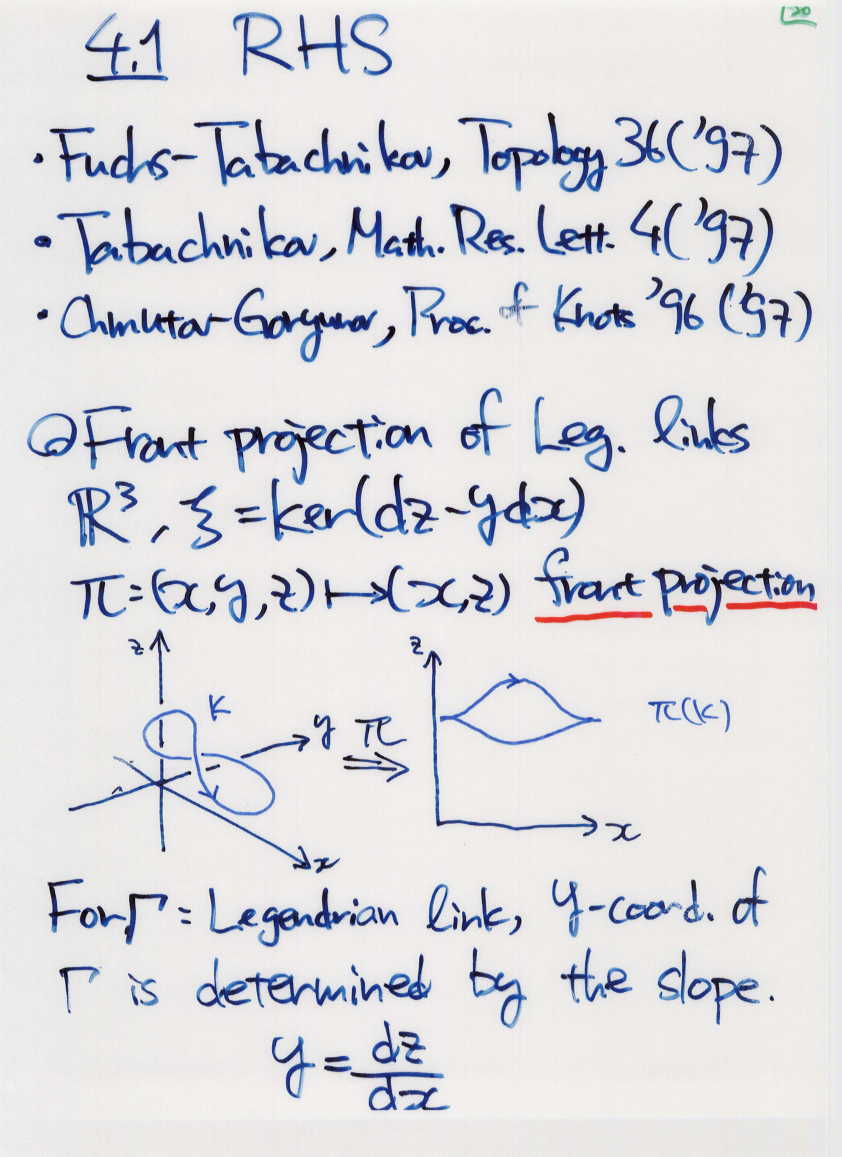 20
4.1 RHS
・Fuchs-Tabachnikov, Topology 36('97)
・Tabachnikov, Math. Res. Lett. 4('97)
・Chmutov-Goryunov, Proc. of Knots '96 ('97)
◎Front projection of Leg. links
ℝ³, ξ = ker(dz-ydx)
π=(x,y,z)↦(x,z) front projection
z K y x
π ⇒
z π(K) x
For Γ = Legendrian link, y-coord. of
Γ is determined by the slope.
y = dz/dx